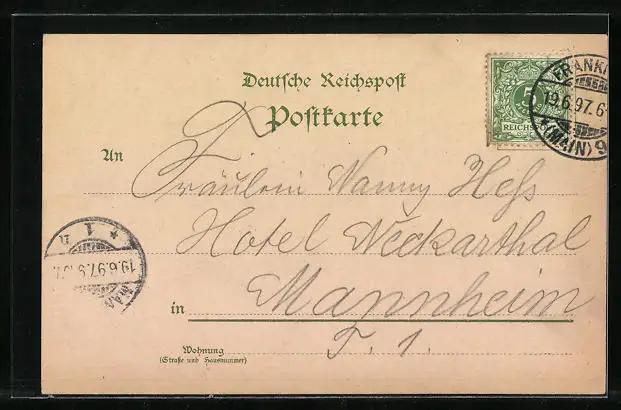 Deutsche Reichspost
Postkarte
5
REICHS
FRANKF
19.6.97.6
(MAIN) 9
An Fräulein Nanny Hess
Hotel Neckarthal
in Mannheim
F. 1.
Wohnung
(Straße und Hausnummer)
* 1
n
19.6.97.9
MAN